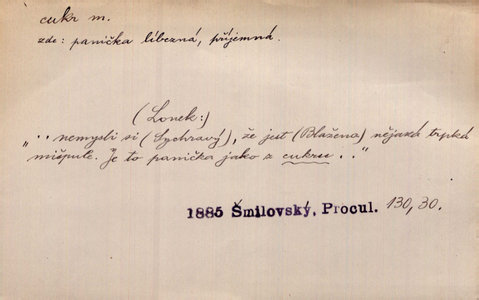 cukr m.
zde: panička líbezná, příjemná.
(Lonek:)
"·· nemysli si (Sychravý), že jest (Blažena) nějaká trpká
mišpule. Je to panička jako z cukru . ."
1885 Šmilovský, Procul. 130,30.